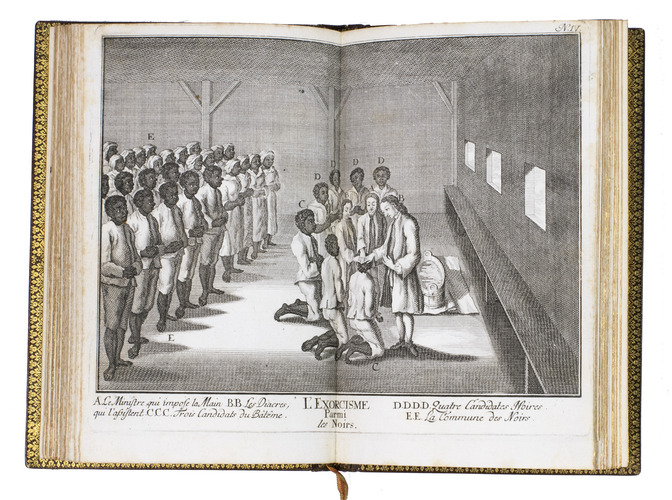 N.VI.
E
D D D D
C
E
C
A. Le Ministre qui impose la Main B.B. Les Diacres,
qui l'assistent C.C.C. Trois Candidats du Bâtême.
L'EXORCISME
Parmi
les Noirs.
D.D.D.D. Quatre Candidates Noires.
E.E. La Commune des Noirs.